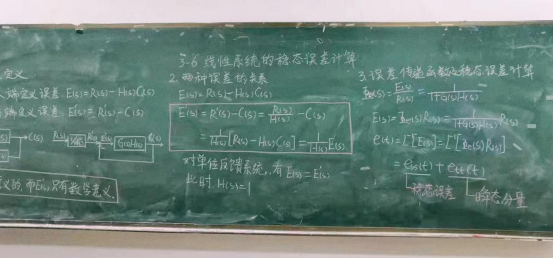 3-6 线性系统的稳态误差计算
定义
端定义误差 E(s)=R(s)-H(s)C(s)
端定义误差 E'(s)=R'(s)-C(s)
C(s) R(s) R'(s) E'(s) G(s)H(s) C(s)
义的, 而E(s)只有数学意义.
2. 两种误差的关系
E(s)=R(s)-H(s)C(s)
E'(s)=R'(s)-C(s)=R(s)/H(s)-C(s)
=1/H(s)[R(s)-H(s)C(s)]=1/H(s)E(s)
对单位反馈系统, 有 E(s)=E'(s)
此时, H(s)=1
3. 误差传递函数及稳态误差计算
Φe(s)=E(s)/R(s)=1/1+G(s)H(s)
E(s)=Φe(s)R(s)=1/1+G(s)H(s) R(s)
e(t)=L⁻¹[E(s)]=L⁻¹[Φe(s)R(s)]
=ess(t)+ets(t)
稳态误差 瞬态分量